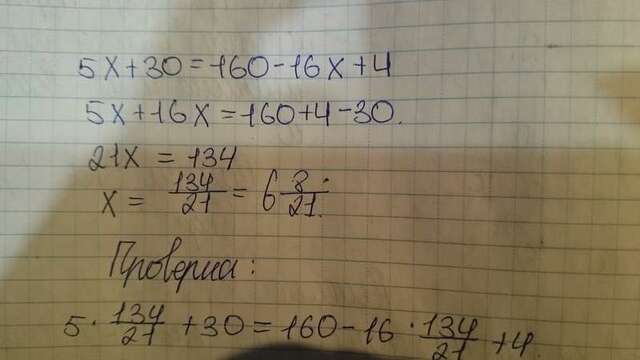 5x+30=160-16x+4
5x+16x=160+4-30.
21x=134
x = 134/21 = 6 8/21.
Проверка:
5·134/21+30=160-16·134/21+4